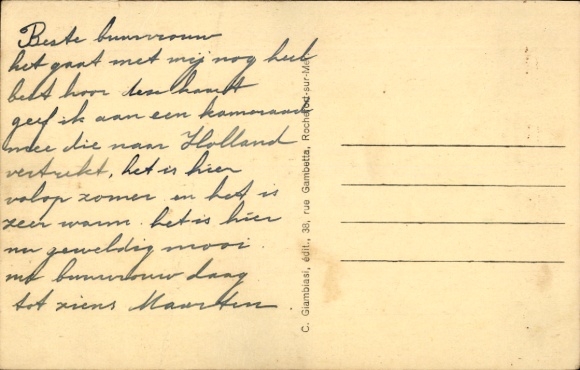 Beste buurvrouw
het gaat met mij nog heel
best hoor deze kaart
geef ik aan een kameraad
mee die naar Holland
vertrekt, het is hier
volop zomer en het is
zeer warm. het is hier
nu geweldig mooi.
nu buurvrouw daag
tot ziens Maarten
C. Giambiasi, édit., 38, rue Gambetta, Rochefort-sur-Mer